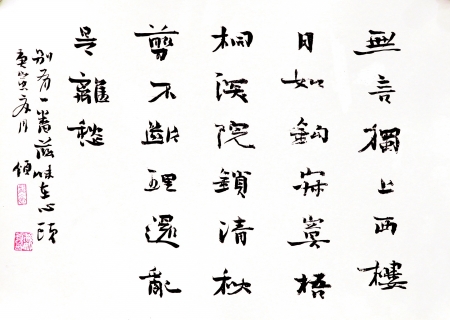 無言獨上西樓
月如鈎寂寞梧
桐深院鎖清秋
剪不斷理還亂
是離愁
别有一番滋味在心頭
庚寅